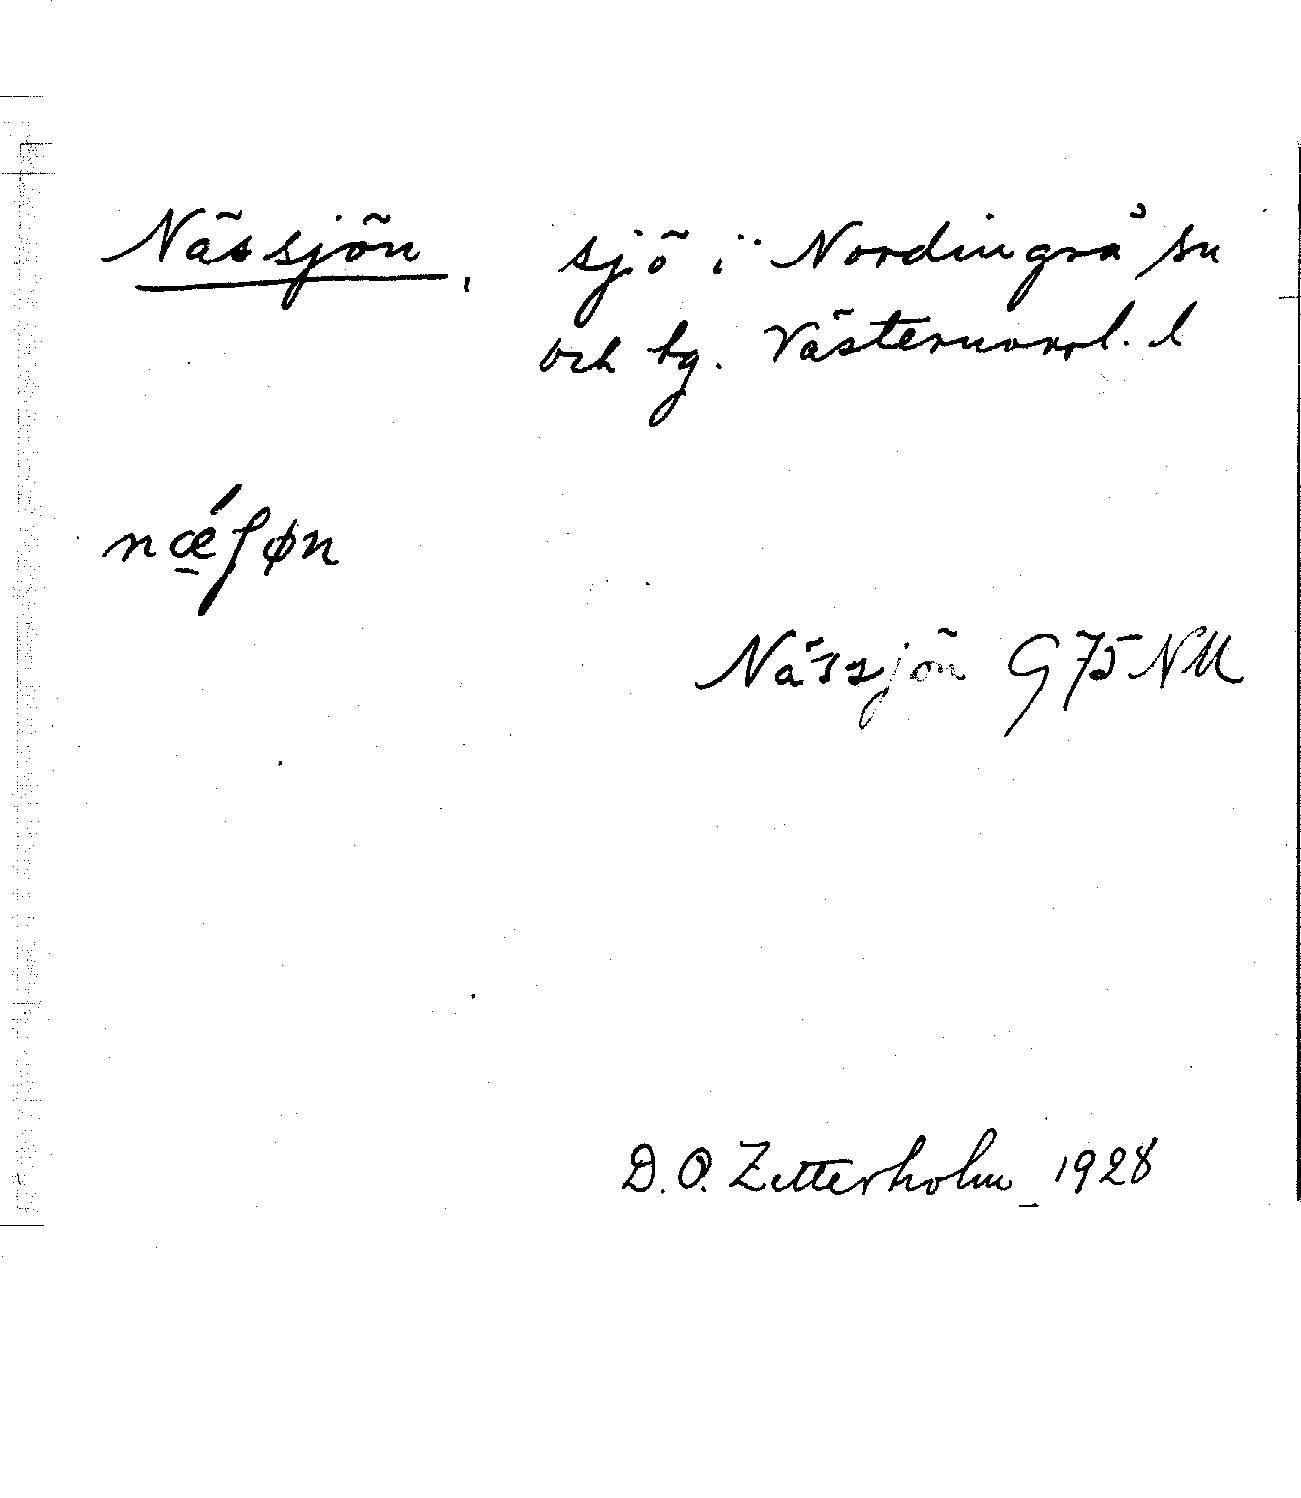 Nässjön, sjö i Nordingrå sn
och tg. Västernorrl. l
nǽ̠ʃøn
Nässjön G75NU
D. O. Zetterholm 1928